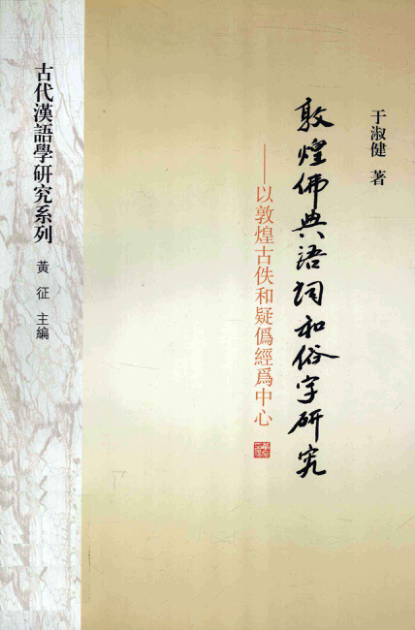 于淑健 著
敦煌佛典語詞和俗字研究
——以敦煌古佚和疑僞經爲中心
古代漢語學研究系列
黃征 主編